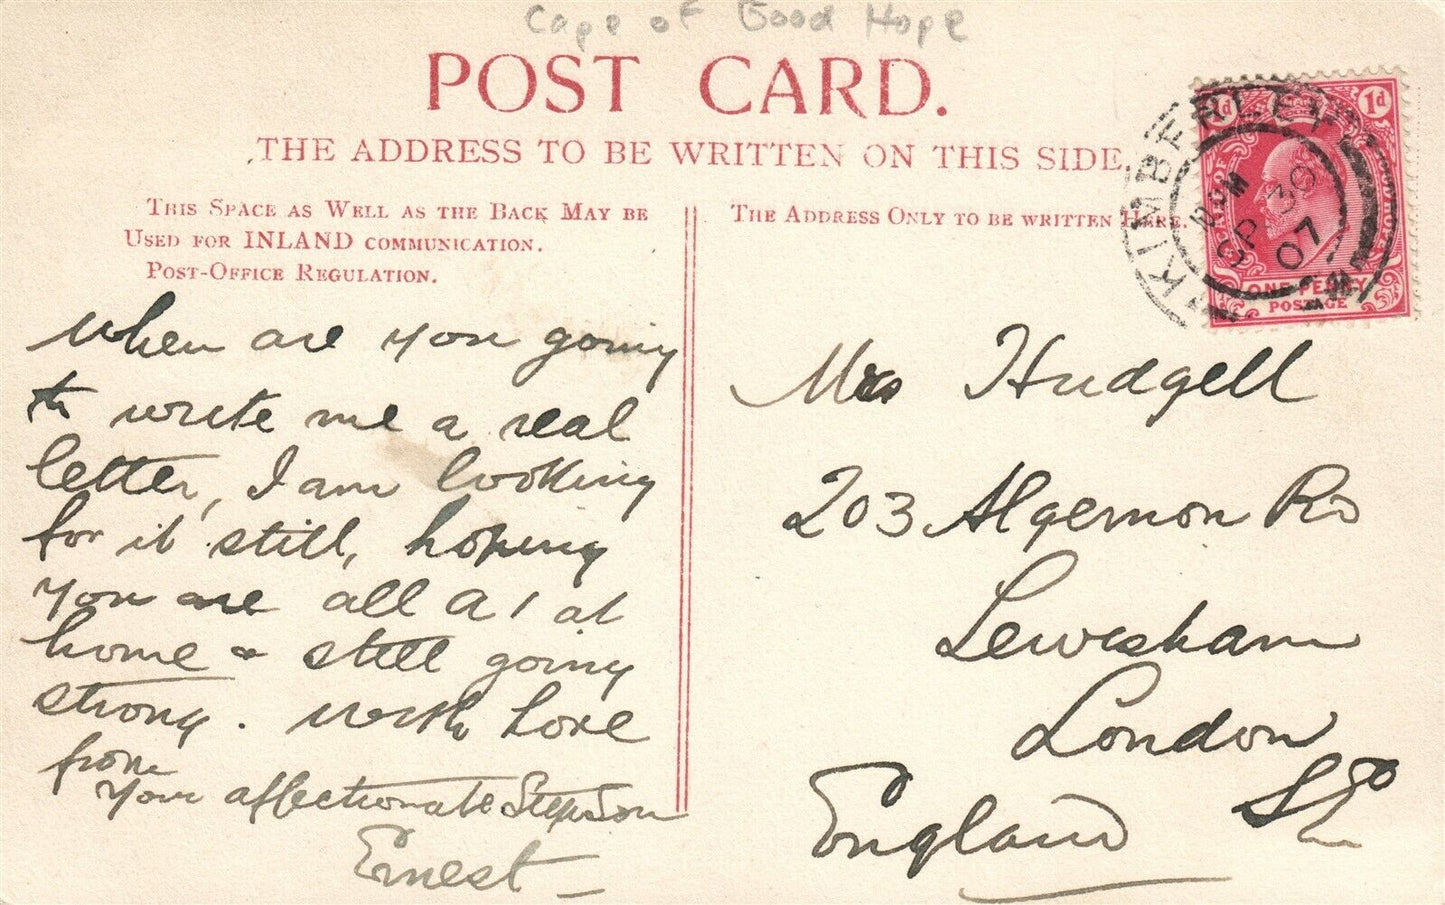 Cape of Good Hope
POST CARD.
THE ADDRESS TO BE WRITTEN ON THIS SIDE.
THIS SPACE AS WELL AS THE BACK MAY BE
USED FOR INLAND COMMUNICATION.
POST-OFFICE REGULATION.
THE ADDRESS ONLY TO BE WRITTEN HERE.
KIMBERLEY
PM
SP 30
07
1d
ONE PENNY
POSTAGE
when are you going
to write me a real
letter, I am looking
for it still, hoping
you are all A1 at
home & still going
strong. with love
from
your affectionate StepSon
Ernest
Mrs Hudgell
203 Algernon Rd
Lewisham
London
SE
England